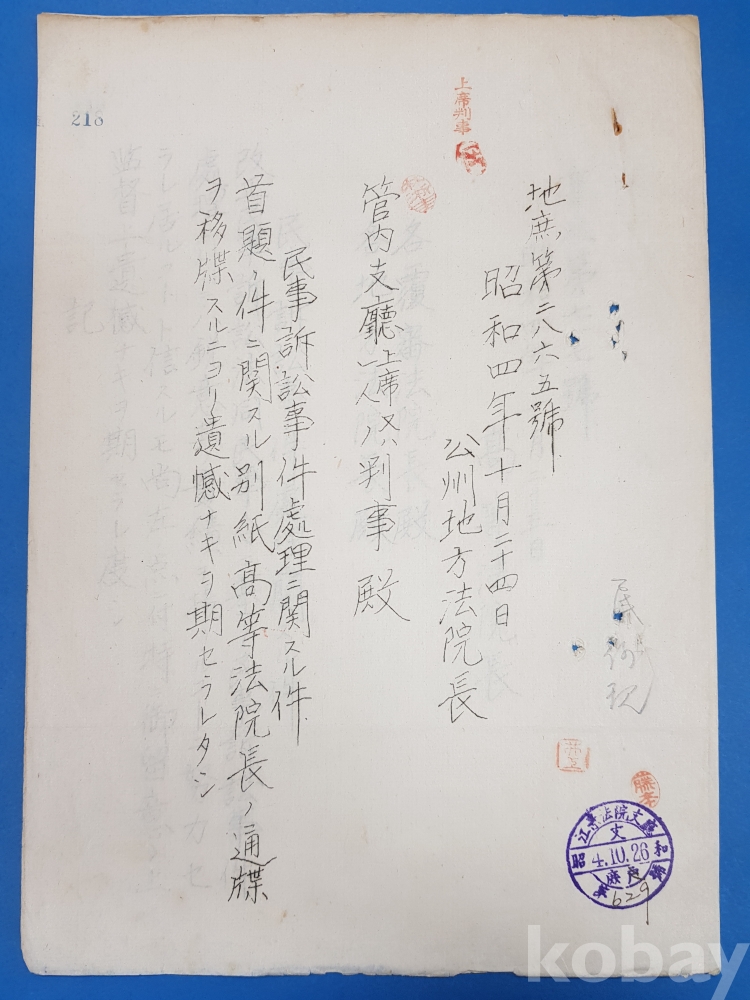 地庶第二八六五號
昭和四年十月二十四日
公州地方法院長
管内支廳上席又ハ一人ノ判事殿
民事訴訟事件處理ニ関スル件
首題ノ件ニ関スル別紙高等法院長ノ通牒
ヲ移牒スルニヨリ遺憾ナキヲ期セラレタシ
上席判事
216
江景法院支廳
昭和
4.10.26
629
kobay